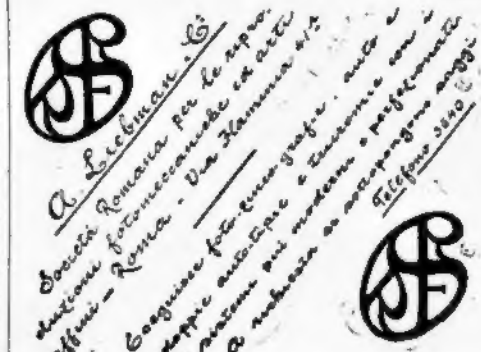 A. Liebman. & Cⁱ
Società Romana per le ripro-
duzioni fotomeccaniche ed arti
affini - Roma - Via Flaminia
Eseguisce foto-zincografie, auto e
doppie auto-tipie e tricromie con i
sistemi più moderni e perfezionati
A richiesta si sottopongono saggi
Telefono 3640